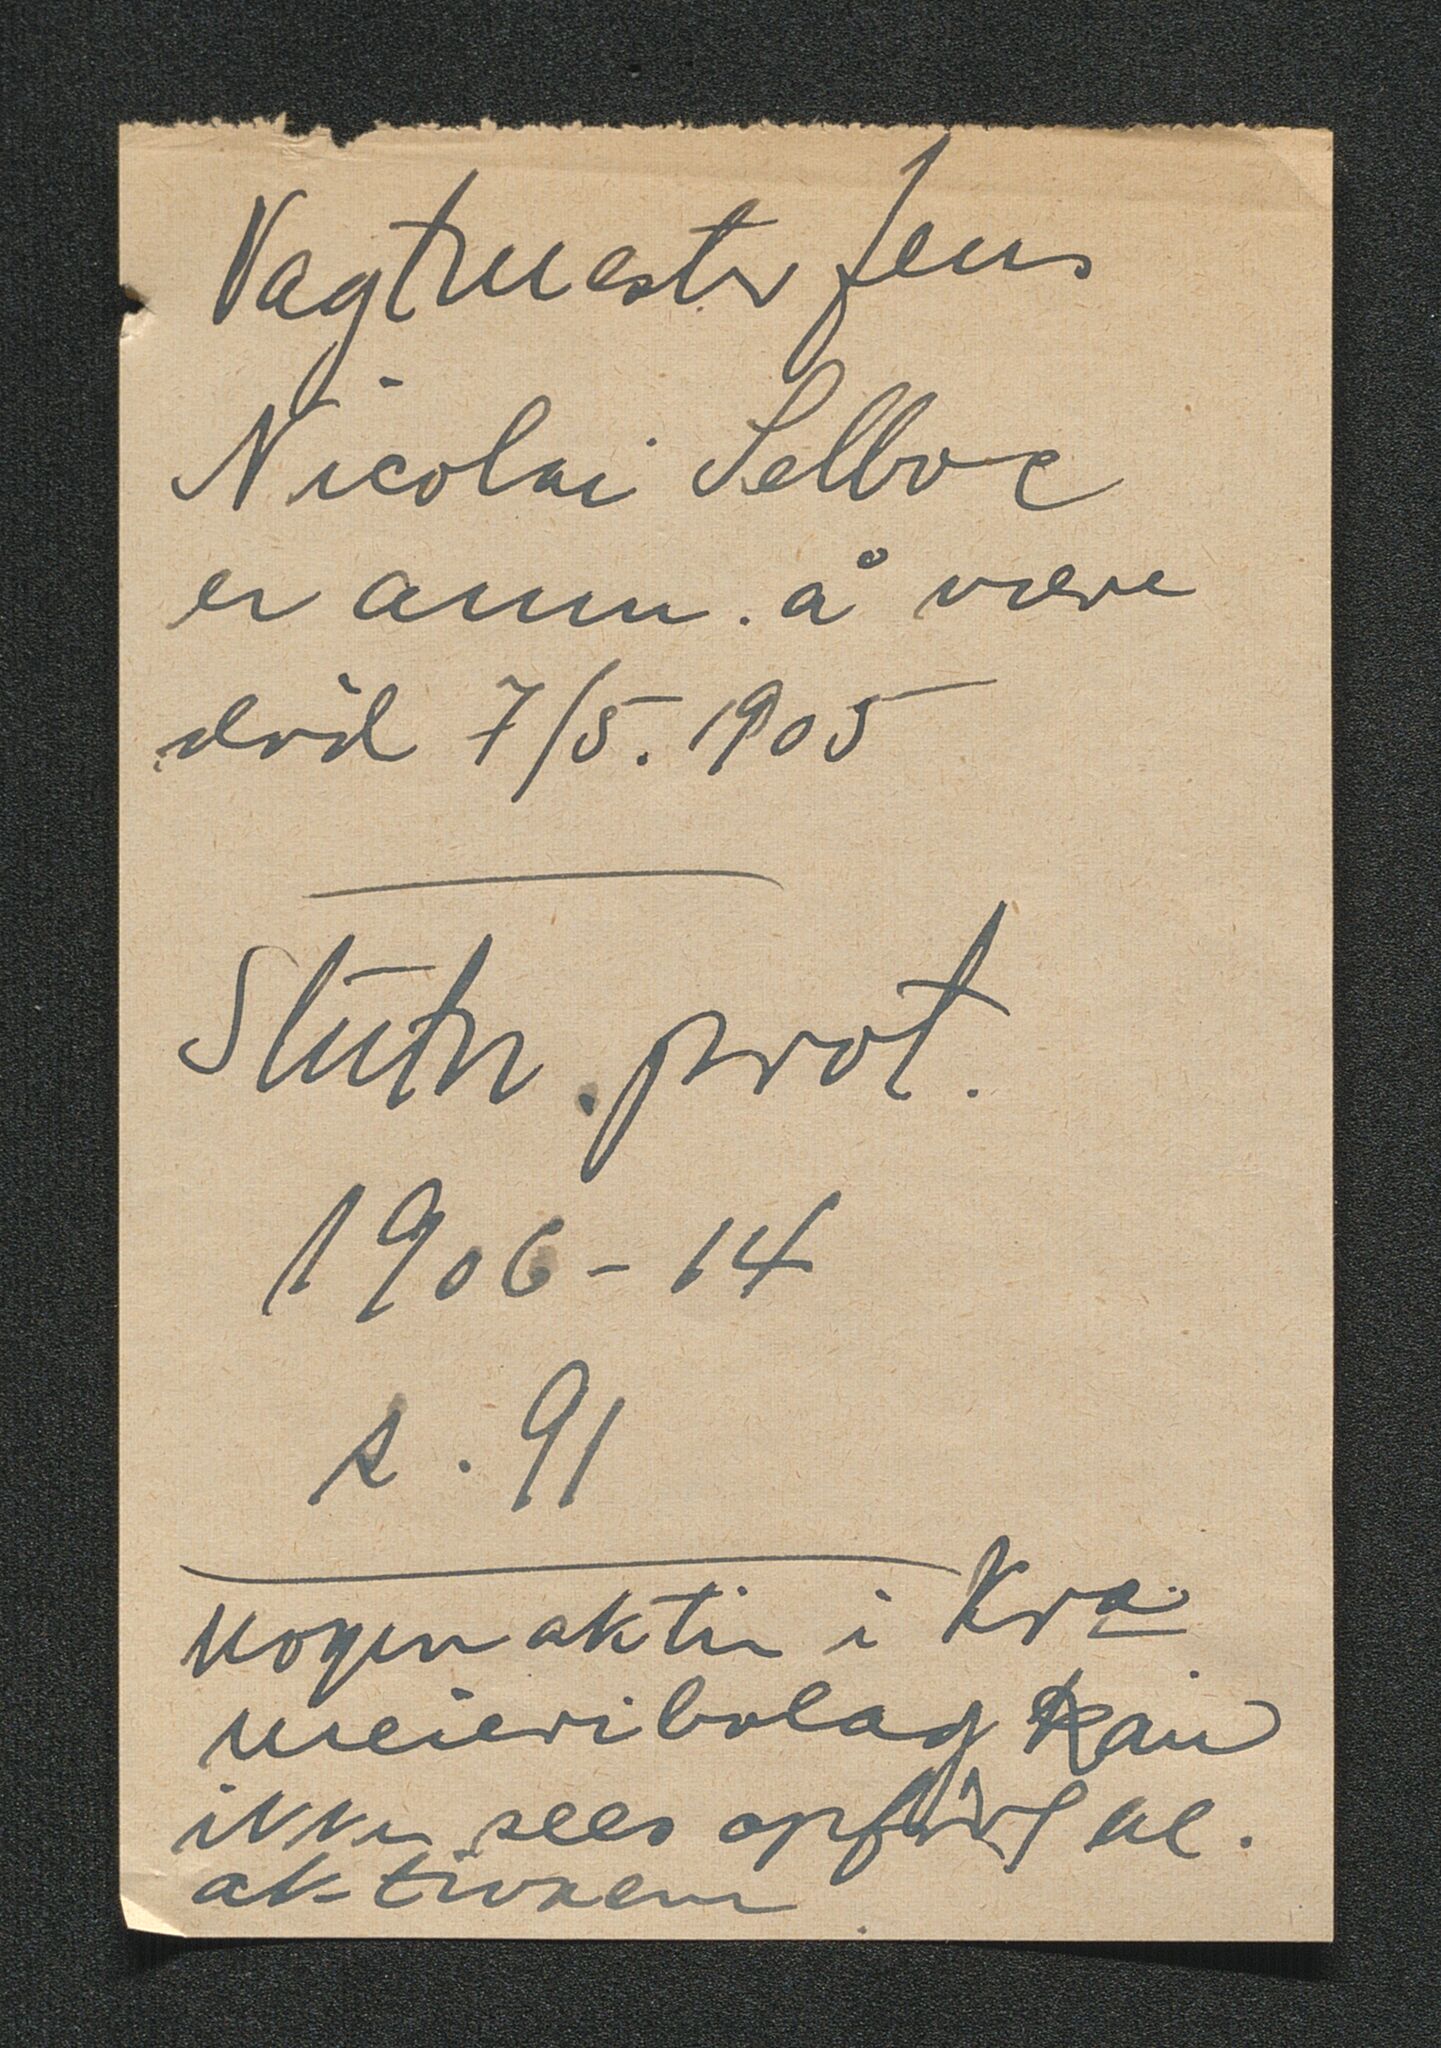 Vagtmester Jens
Nicolai Selboe
er anm. å være
död 7/5. 1905
Slutn. prot.
1906 - 14
s. 91
Nogen aktie i Kra
meieribolag kan
ikke sees opført bl.
aktivaene